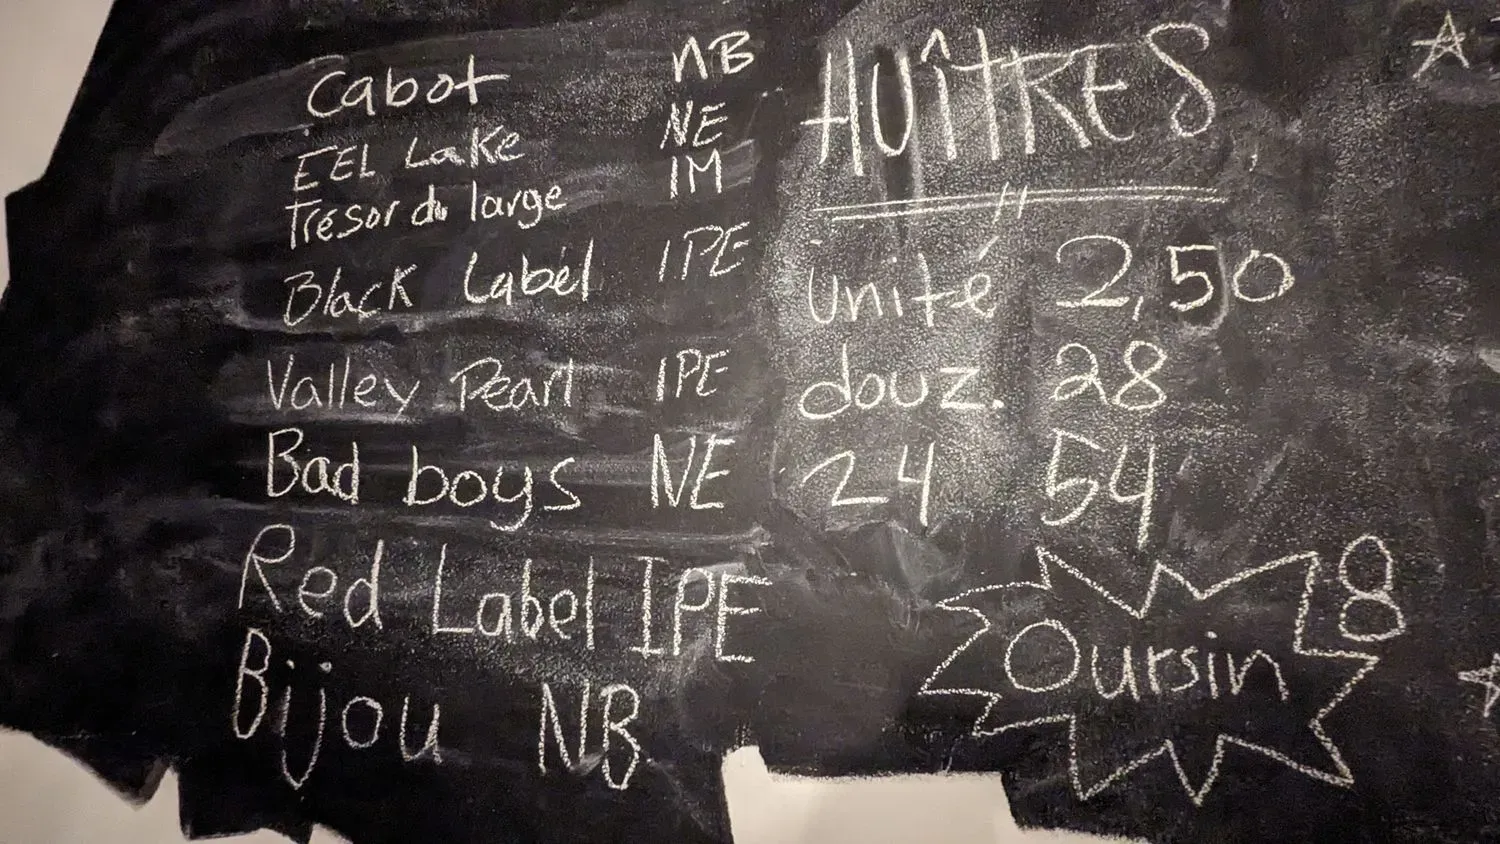 Cabot NB
EEL Lake NE
Trésor du large IM
Black Label IPE
Valley Pearl IPE
Bad boys NE
Red Label IPE
Bijou NB
HUÎTRES
unité 2,50
douz. 28
24 54
Oursin 8